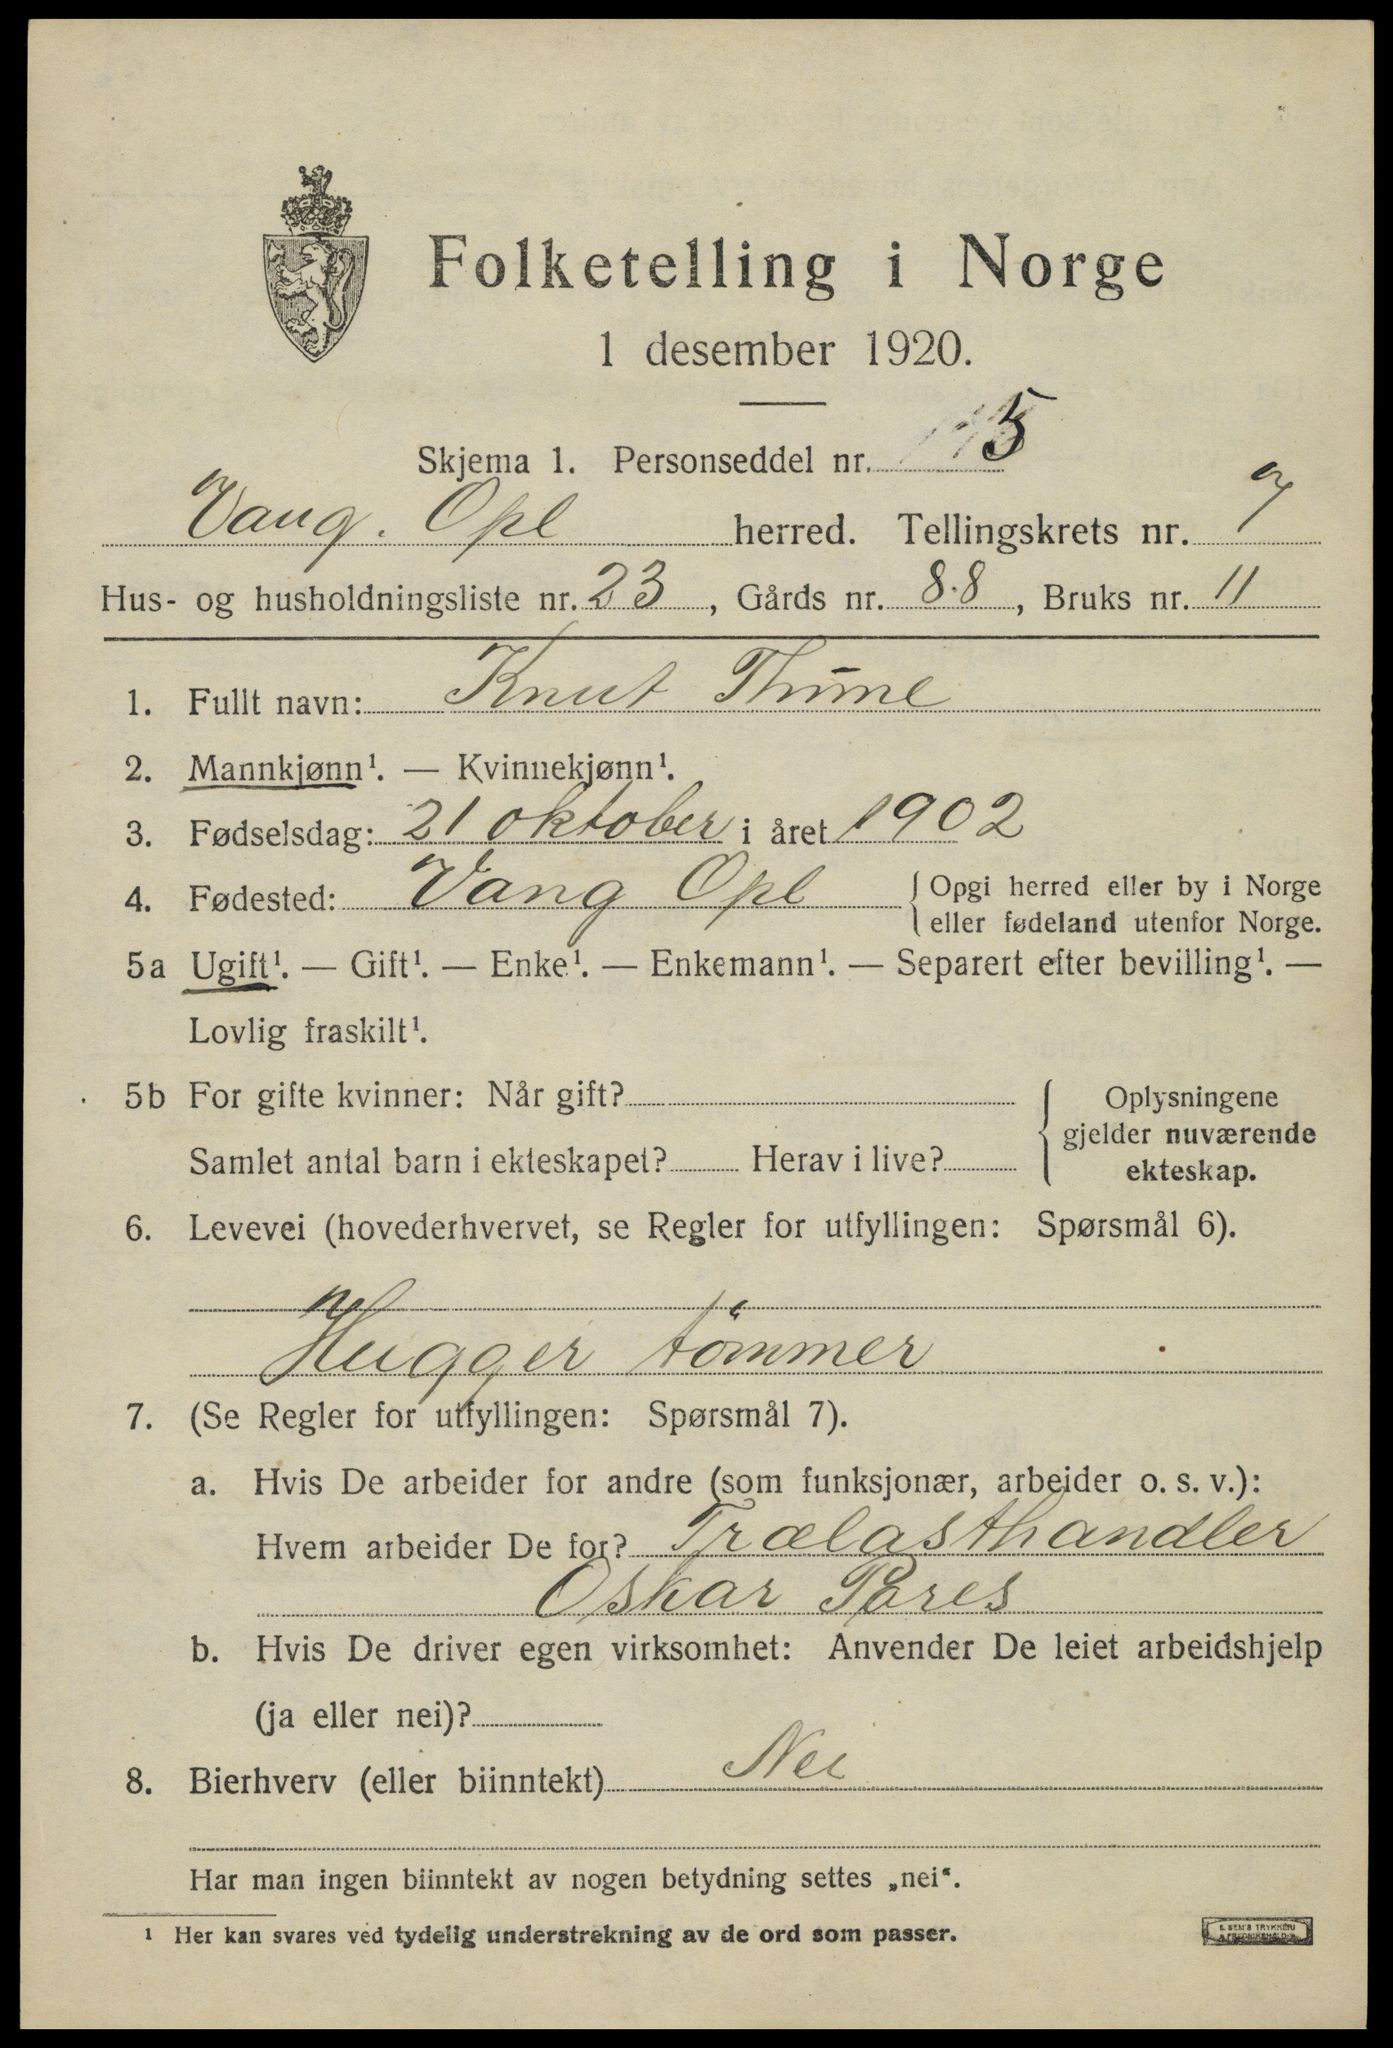 Folketelling i Norge
1 desember 1920.
Skjema 1. Personseddel nr. 5
Vang. Opl herred. Tellingskrets nr. 7
Hus- og husholdningsliste nr. 23, Gårds nr. 88, Bruks nr. 11
1. Fullt navn: Knut Thune
2. Mannkjønn¹. — Kvinnekjønn¹.
3. Fødselsdag: 21 oktober i året 1902
4. Fødested: Vang Opl { Opgi herred eller by i Norge
eller fødeland utenfor Norge.
5a Ugift¹. — Gift¹. — Enke¹. — Enkemann¹. — Separert efter bevilling¹. —
Lovlig fraskilt¹.
5b For gifte kvinner: Når gift? { Oplysningene
gjelder nuværende
Samlet antal barn i ekteskapet? Herav i live? ekteskap.
6. Levevei (hovederhvervet, se Regler for utfyllingen: Spørsmål 6).
Hugger tömmer
7. (Se Regler for utfyllingen: Spørsmål 7).
a. Hvis De arbeider for andre (som funksjonær, arbeider o. s. v.):
Hvem arbeider De for? Trælasthandler
Oskar
b. Hvis De driver egen virksomhet: Anvender De leiet arbeidshjelp
(ja eller nei)?
8. Bierhverv (eller biinntekt) Nei
Har man ingen biinntekt av nogen betydning settes „nei“.
¹ Her kan svares ved tydelig understrekning av de ord som passer.